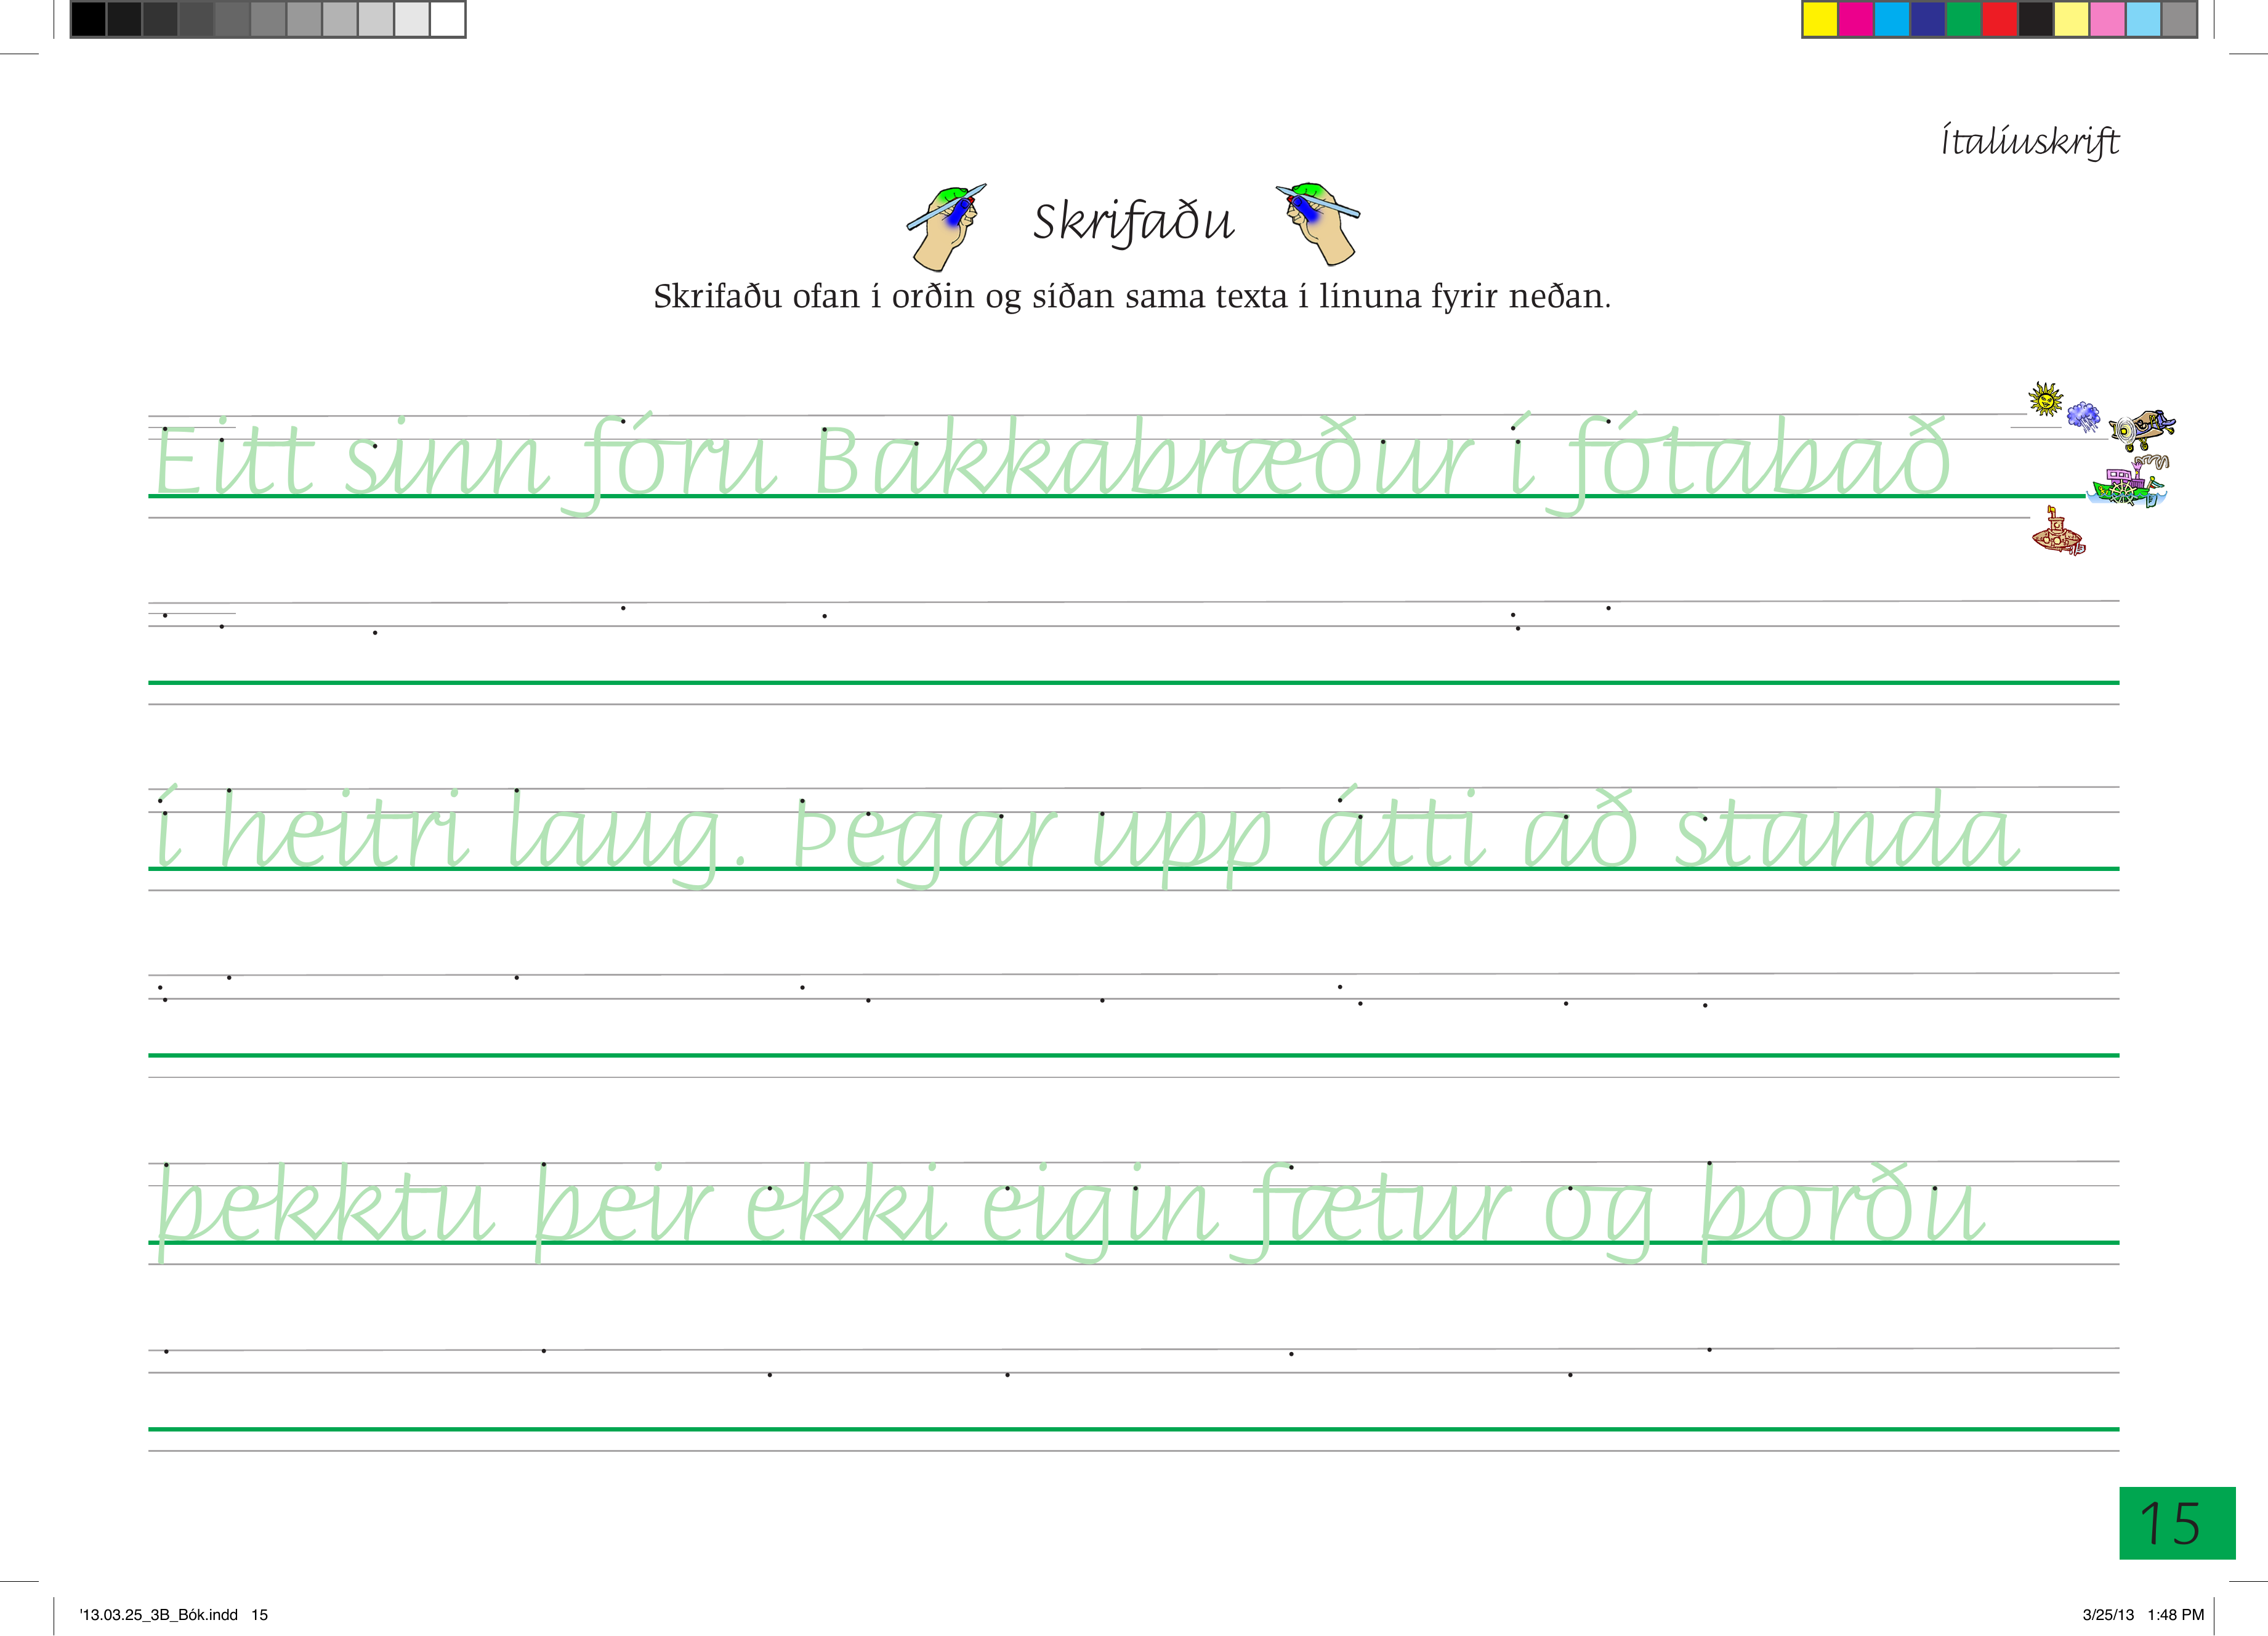 Ítalíuskrift
Skrifaðu
Skrifaðu ofan í orðin og síðan sama texta í línuna fyrir neðan.
Eitt sinn fóru Bakkabræður í fótabað
í heitri laug. Þegar upp átti að standa
þekktu þeir ekki eigin fætur og þorðu
15
'13.03.25_3B_Bók.indd 15
3/25/13 1:48 PM